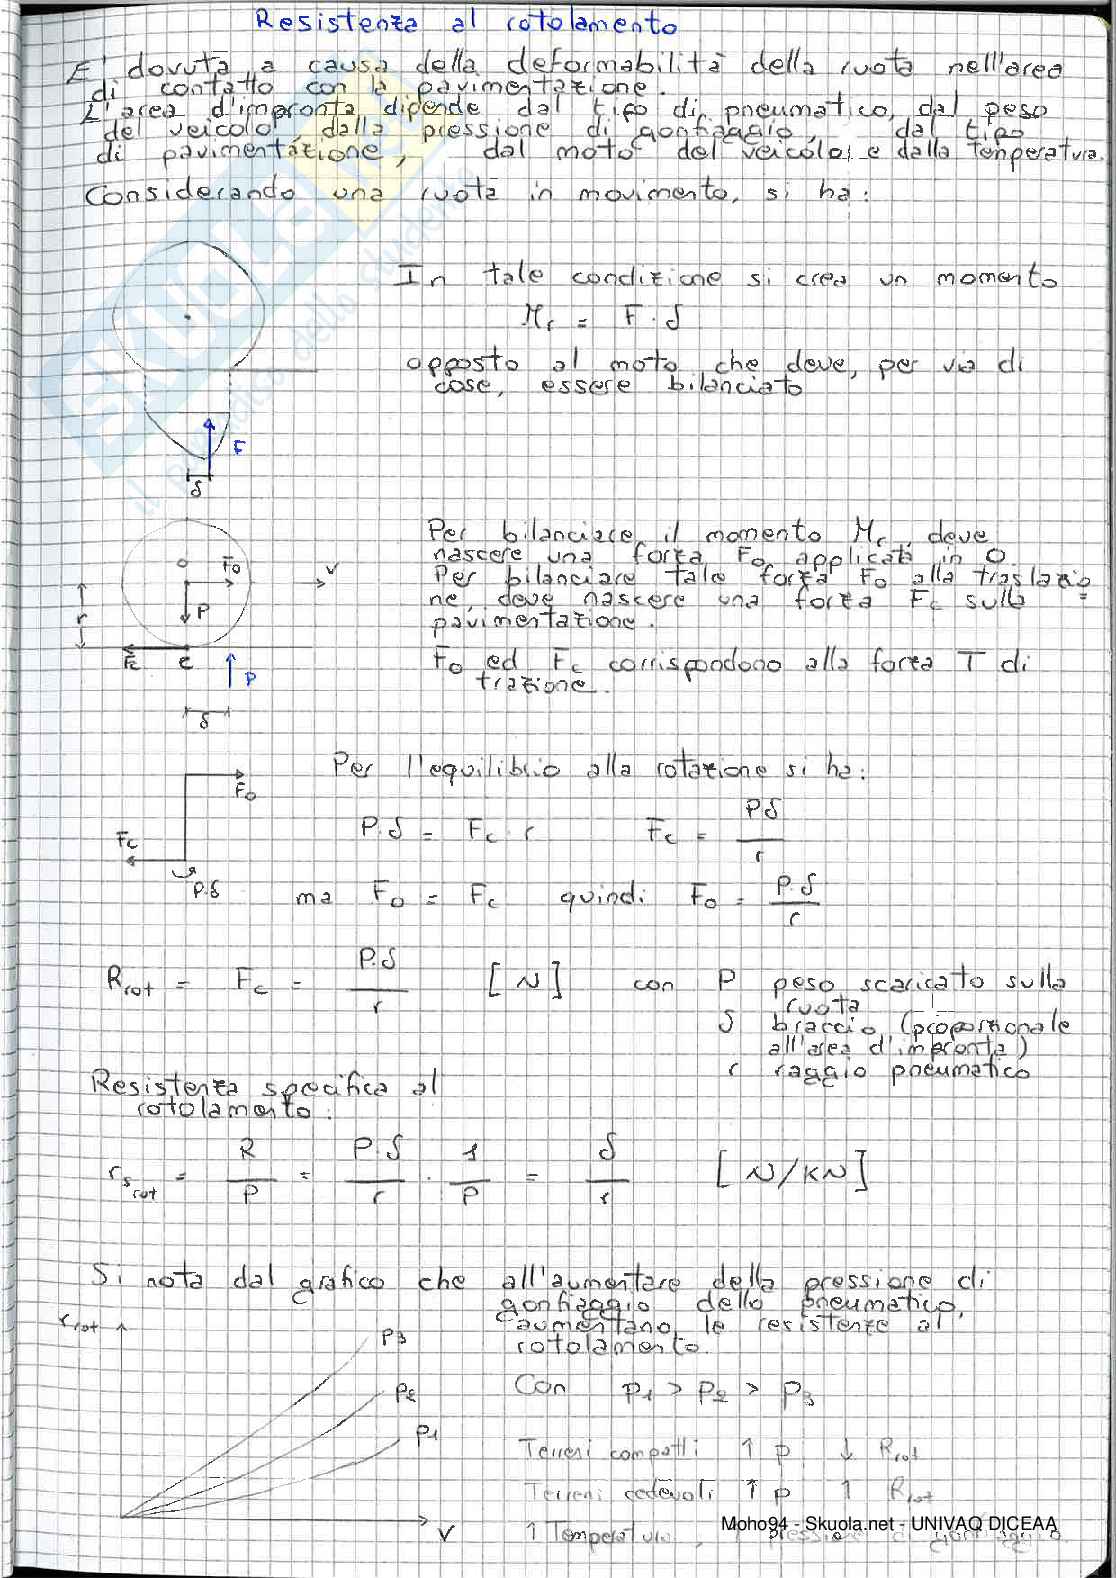 Resistenza al rotolamento
E' dovuta a causa della deformabilità della ruota nell'area
di contatto con la pavimentazione.
L'area d'impronta dipende dal tipo di pneumatico, dal peso
del veicolo, dalla pressione di gonfiaggio, dal tipo
di pavimentazione, dal moto del veicolo e dalla temperatura.
Considerando una ruota in movimento, si ha:
In tale condizione si crea un momento
Mr = F · δ
opposto al moto che deve, per via di
cose, essere bilanciato
F
δ
Per bilanciare il momento Mr, deve
nascere una forza Fo applicata in O.
Per bilanciare tale forza Fo alla traslazio
ne, deve nascere una forza Fc sulla
pavimentazione.
Fo ed Fc corrispondono alla forza T di
trazione.
O Fo v
P
r
Fc c P
δ
Per l'equilibrio alla rotazione si ha:
Fo
P·δ = Fc · r Fc = Pδ / r
Fc
P·δ
ma Fo = Fc quindi Fo = P·δ / r
Rrot = Fc = P·δ / r [N] con P peso scaricato sulla
ruota
δ braccio (proporzionale
all'area d'impronta)
r raggio pneumatico
Resistenza specifica al
rotolamento:
rs rot = R / P = P·δ / r · 1 / P = δ / r [N/KN]
Si nota dal grafico che all'aumentare della pressione di
gonfiaggio dello pneumatico,
aumentano le resistenze al
rotolamento.
rrot
p3
p2
p1
V
Con p1 > p2 > p3
Terreni compatti ↑ p ↓ Rrot
Terreni cedevoli ↑ p ↑ Rrot
↑ Temperatura, pressione di gonfiaggio
Moho94 - Skuola.net - UNIVAQ DICEAA
SKUOLA.NET
il paradiso dello studente